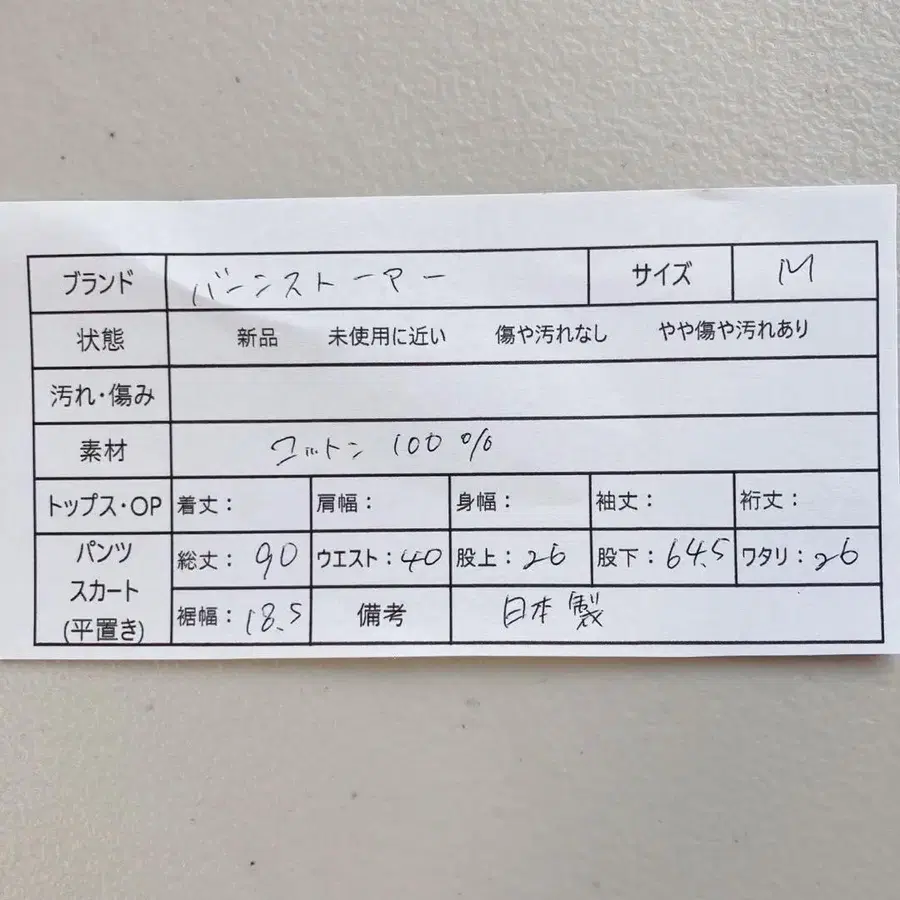 ブランド バーンストーマー サイズ M
状態 新品 未使用に近い 傷や汚れなし やや傷や汚れあり
汚れ・傷み
素材 コットン 100%
トップス・OP 着丈: 肩幅: 身幅: 袖丈: 裄丈:
パンツ スカート (平置き) 総丈: 90 ウエスト: 40 股上: 26 股下: 64.5 ワタリ: 26
裾幅: 18.5 備考 日本製